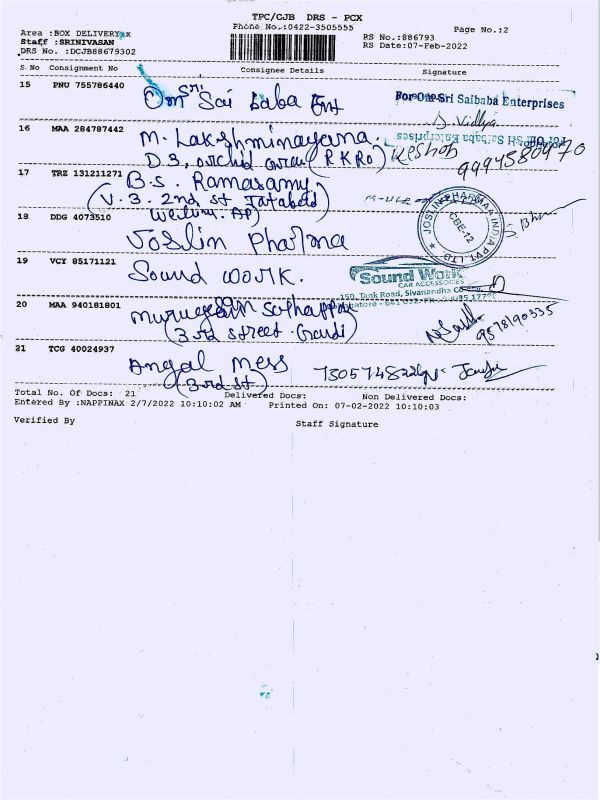 TPC/CJB DRS - PCX
Phone No.:0422-3505555
Page No.:2
Area :BOX DELIVERY
Staff :SRINIVASAN
DRS No. :DCJB88679302
RS No.:886793
RS Date:07-Feb-2022
S No Consignment No Consignee Details Signature
15 PNU 755786440 Om Sri Sai baba Ent
For Om Sri Saibaba Enterprises
S. Vidhya
16 MAA 284787442 M. Lakshminayana.
D3, orchid (RKRO)
Keshob
9994580470
17 TRZ 131211271 B.S. Ramasamy
(V.3. 2nd st Tatabad)
18 DDG 4073510 Joslin Pharma
JOSLIN PHARMAA INDIA PVT. LTD.
CBE-12
19 VCY 85171121 Sound work.
Sound Work
CAR ACCESSORIES
150, Tank Road, Sivanandha Colony,
20 MAA 940181801
(3rd street
9578190335
21 TCG 40024937 Angal Mess
(3rd st)
Total No. Of Docs: 21 Delivered Docs: Non Delivered Docs:
Entered By :NAPPINAX 2/7/2022 10:10:02 AM Printed On: 07-02-2022 10:10:03
Verified By Staff Signature